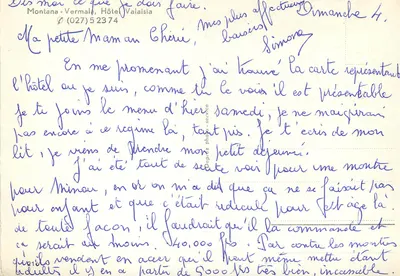 Dis moi ce que je dois faire.
mes plus affectueux
baisers
Simone
Montana - Vermala, Hôtel Valaisia
✆ (027) 5 23 74
Dimanche 4.
Ma petite Maman Chérie,
En me promenant j'ai trouvé la carte représentant
l'hôtel ou je suis, comme tu le vois il est présentable
je te joins le menu d'hier samedi, je ne maigrirai
pas encore à ce régime là, tant pis. Je t'écris de mon
lit, je viens de prendre mon petit déjeuné.
J'ai été tout de suite voir pour une montre
pour Minou, en or on m'a dit que ça ne se faisait pas
pour enfant et que c'était ridicule pour cet âge là.
de toute façon, il faudrait qu'il la commande et
ça serait au moins 40,000 frs. Par contre les montres
qu'ils vendent en acier qu'il peut même mettre étant
adulte il y en a à partir de 5000 frs très bien incassable